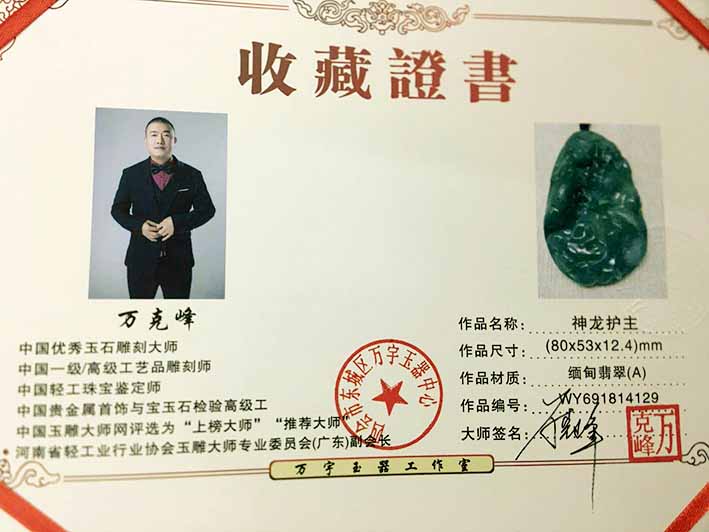 收藏證書
万克峰
中国优秀玉石雕刻大师
中国一级/高级工艺品雕刻师
中国轻工珠宝鉴定师
中国贵金属首饰与宝玉石检验高级工
中国玉雕大师网评选为“上榜大师”“推荐大师”
河南省轻工业行业协会玉雕大师专业委员会(广东)副会长
四会市东城区万宇玉器中心
作品名称: 神龙护主
作品尺寸: (80x53x12.4)mm
作品材质: 缅甸翡翠(A)
作品编号: WY691814129
大师签名: 万克峰
万克峰
万宇玉器工作室